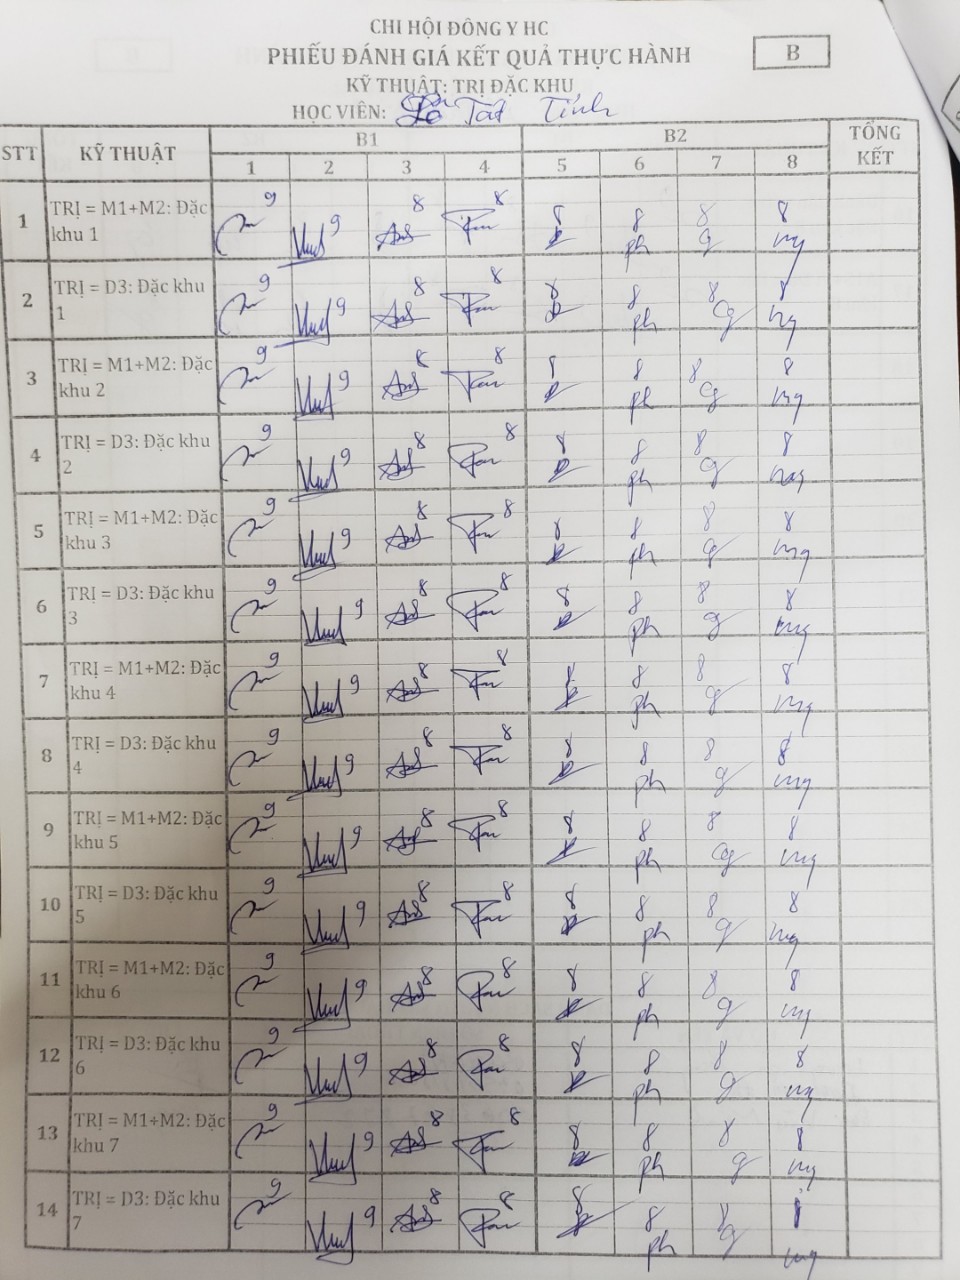 CHI HỘI ĐÔNG Y HC
PHIẾU ĐÁNH GIÁ KẾT QUẢ THỰC HÀNH
B
KỸ THUẬT: TRỊ ĐẶC KHU
HỌC VIÊN: Tất Tính
STT KỸ THUẬT B1 B2 TỔNG KẾT
1 2 3 4 5 6 7 8
1 TRỊ = M1+M2: Đặc khu 1 9 9 8 8 8 8 8 8
ph g ng
2 TRỊ = D3: Đặc khu 1 9 9 8 8 8 8 8 8
ph g ng
3 TRỊ = M1+M2: Đặc khu 2 9 9 8 8 8 8 8 8
ph g ng
4 TRỊ = D3: Đặc khu 2 9 9 8 8 8 8 8 8
ph g ng
5 TRỊ = M1+M2: Đặc khu 3 9 9 8 8 8 8 8 8
ph g ng
6 TRỊ = D3: Đặc khu 3 9 9 8 8 8 8 8 8
ph g ng
7 TRỊ = M1+M2: Đặc khu 4 9 9 8 8 8 8 8 8
ph g ng
8 TRỊ = D3: Đặc khu 4 9 9 8 8 8 8 8 8
ph g ng
9 TRỊ = M1+M2: Đặc khu 5 9 9 8 8 8 8 8 8
ph g ng
10 TRỊ = D3: Đặc khu 5 9 9 8 8 8 8 8 8
ph g ng
11 TRỊ = M1+M2: Đặc khu 6 9 9 8 8 8 8 8 8
ph g ng
12 TRỊ = D3: Đặc khu 6 9 9 8 8 8 8 8 8
ph g ng
13 TRỊ = M1+M2: Đặc khu 7 9 9 8 8 8 8 8 8
ph g ng
14 TRỊ = D3: Đặc khu 7 9 9 8 8 8 8 8
ph g ng